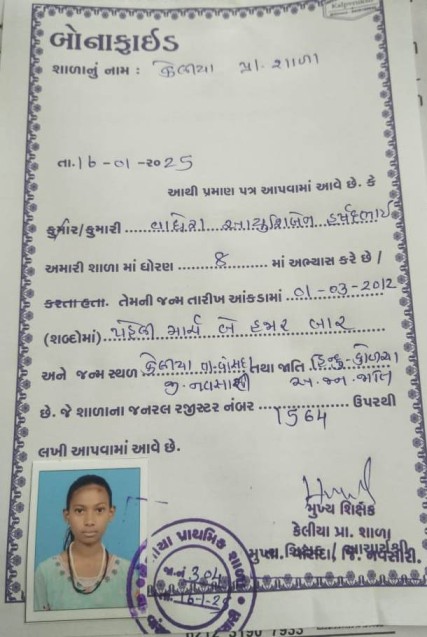 બોનાફાઈડ
શાળાનું નામ : કેલીયા પ્રા. શાળા
તા. 16-01-2025
આથી પ્રમાણ પત્ર આપવામાં આવે છે. કે
કુમાર/કુમારી વાઘેરા આયુશિબેન હર્ષદભાઈ
અમારી શાળા માં ધોરણ 8 માં અભ્યાસ કરે છે /
કરતા હતા. તેમની જન્મ તારીખ આંકડામાં 01-03-2012
(શબ્દોમાં) પહેલી માર્ચ બે હજાર બાર
અને જન્મ સ્થળ કેલીયા તા-વાંસદા તથા જાતિ હિન્દુ-કોળચા
જી.નવસારી અ.જન.જાતિ
છે. જે શાળાના જનરલ રજીસ્ટર નંબર 1564 ઉપરથી
લખી આપવામાં આવે છે.
મુખ્ય શિક્ષક
કેલીયા પ્રા. શાળા
મુખ્ય શિક્ષક / આચાર્યશ્રી
તા. વાંસદા, જિ. નવસારી.
પ્રાથમિક શાળા
જા.નં. 304